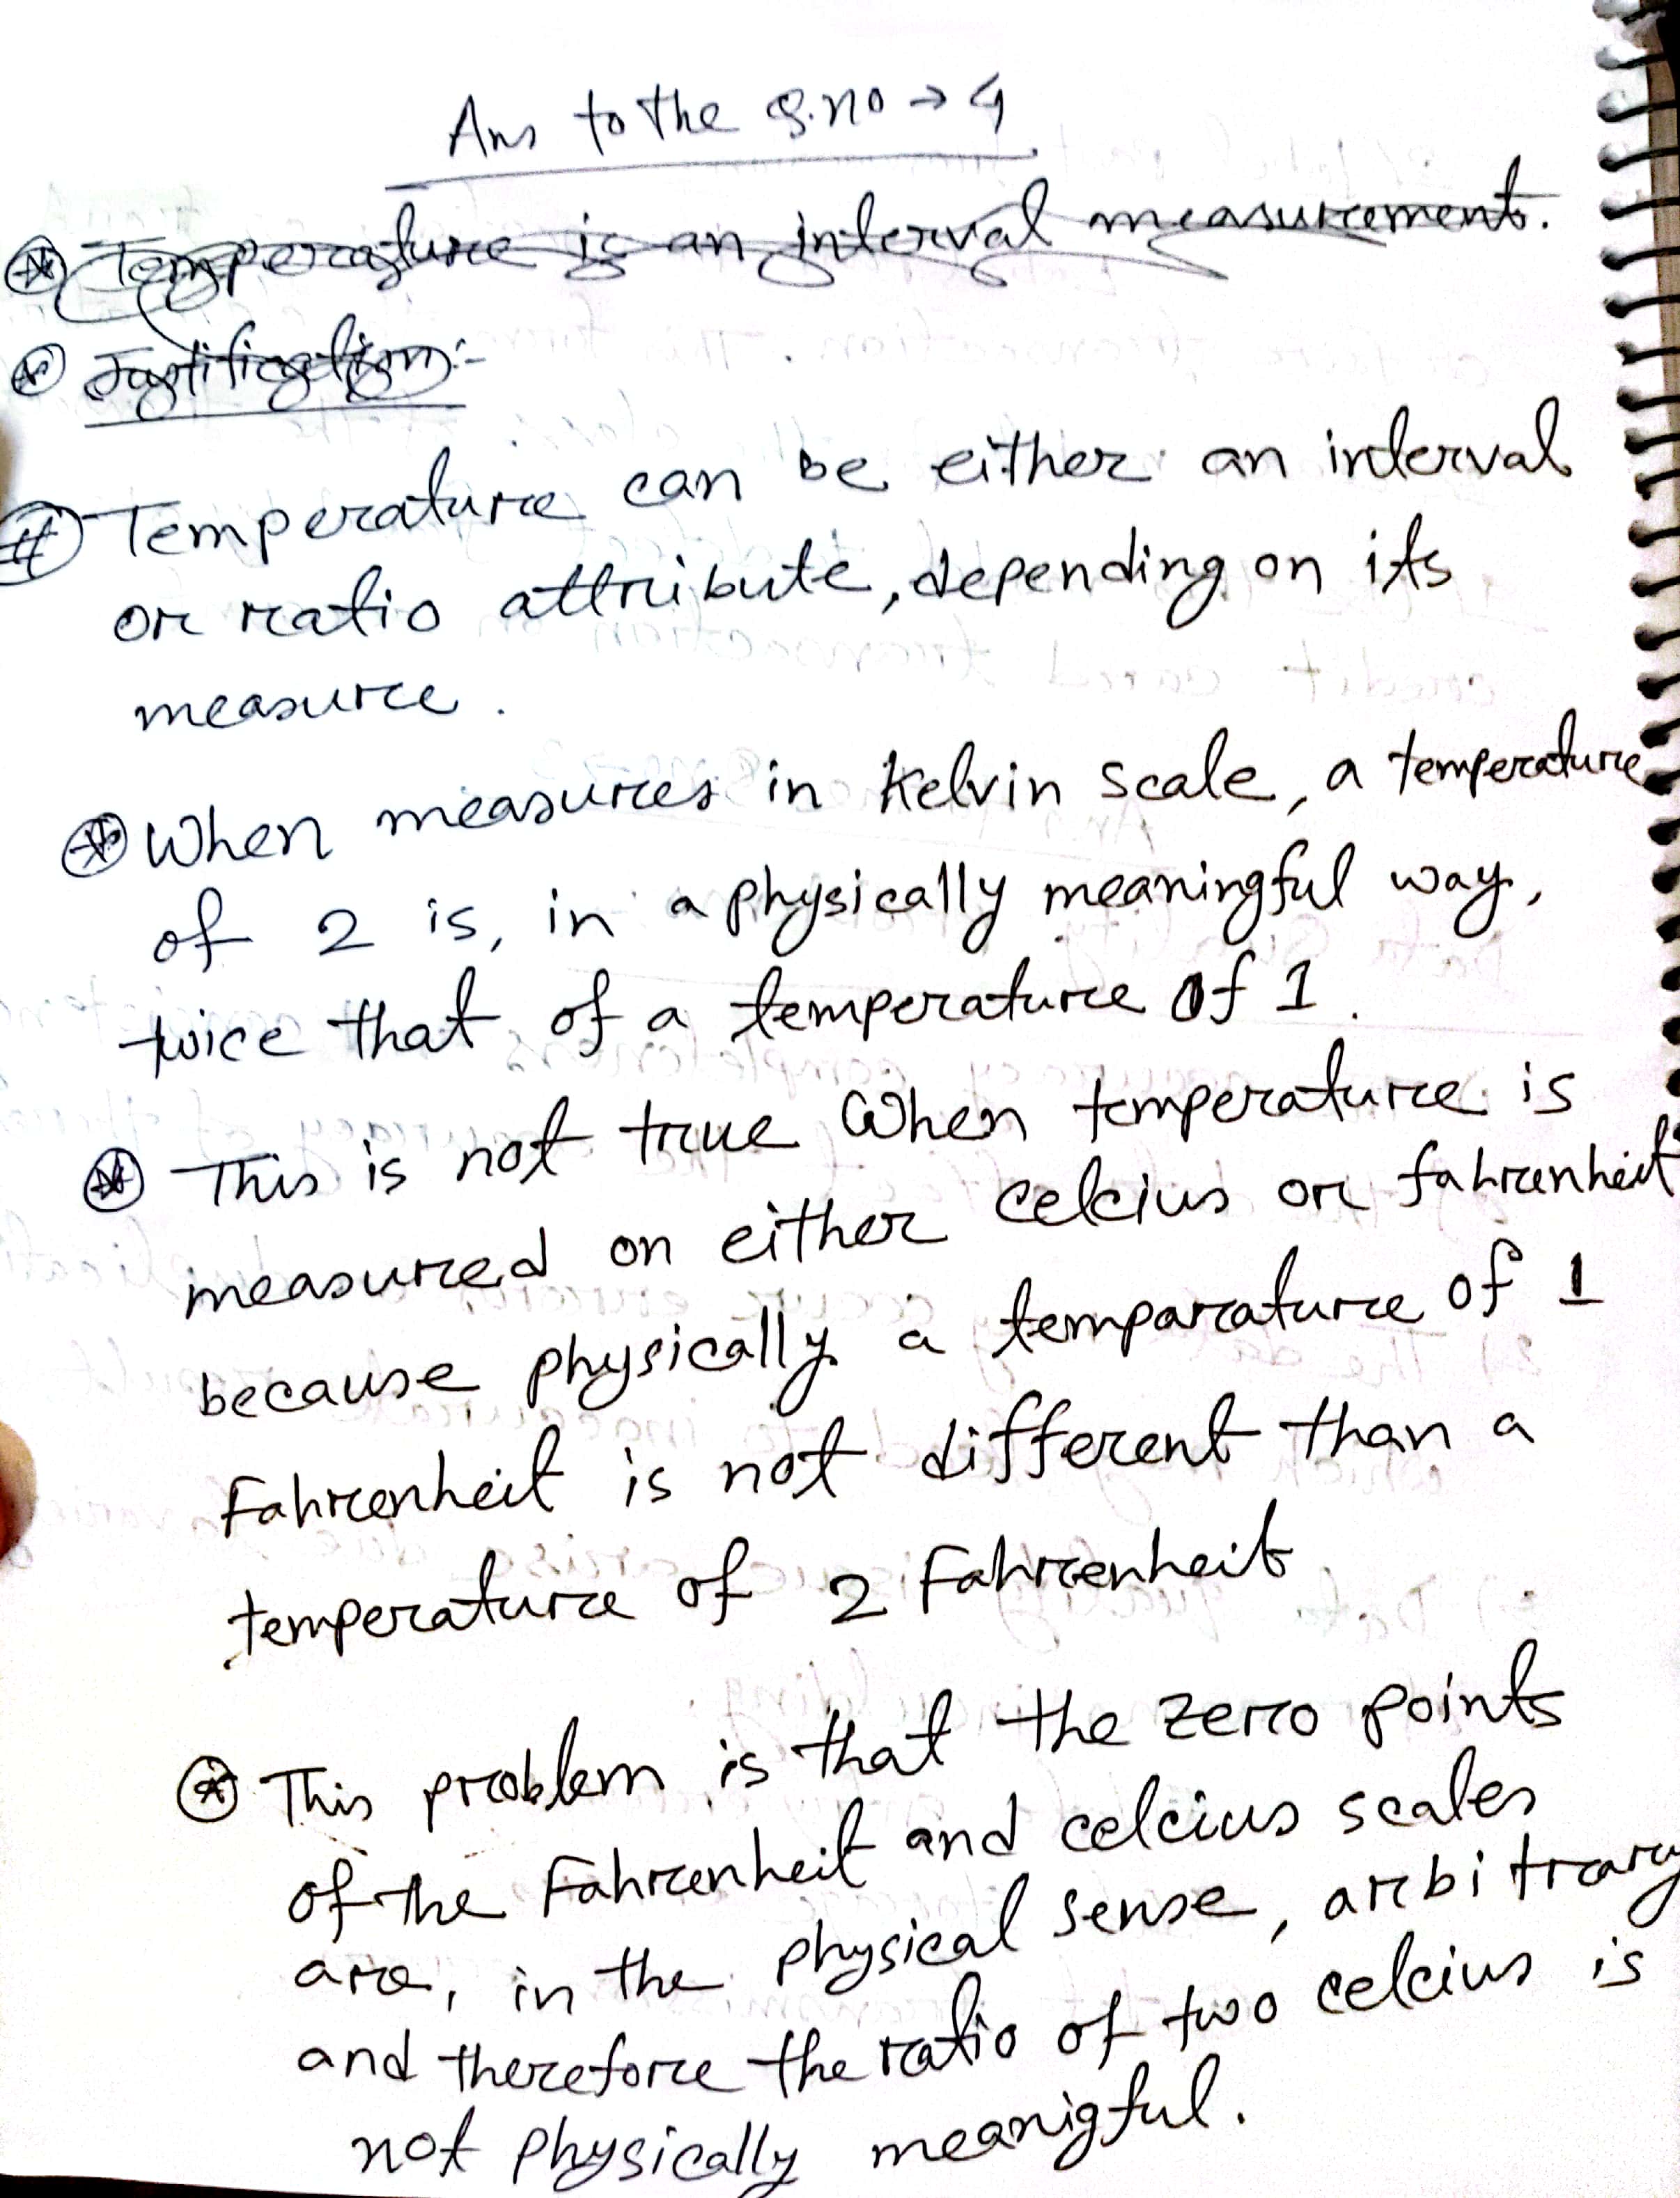 Ans to the Q.no → 4
Temperature is an interval measurement.
Justification:-
# Temperature can be either an interval
or ratio attribute, depending on its
measure.
When measures in Kelvin scale, a temperature
of 2 is, in a physically meaningful way,
twice that of a temperature of 1.
This is not true When temperature is
measured on either celcius or fahrenheit
because physically a temparature of 1
Fahrenheit is not different than a
temperature of 2 Fahrenheit
This problem is that the zero points
of the Fahrenheit and celcius scales
are, in the physical sense, arbitrary
and therefore the ratio of two celcius is
not physically meanigful.